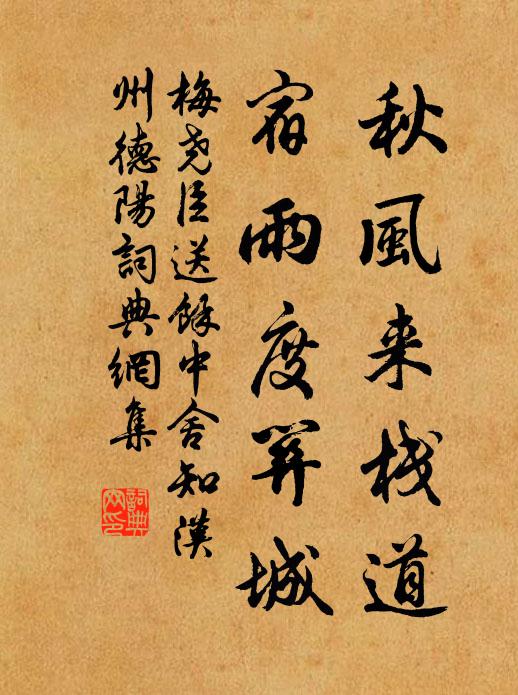 秋風来栈道
宿雨度葬城
梅堯臣送餘中舍知漢
州德陽詞典網集
詞典
网印